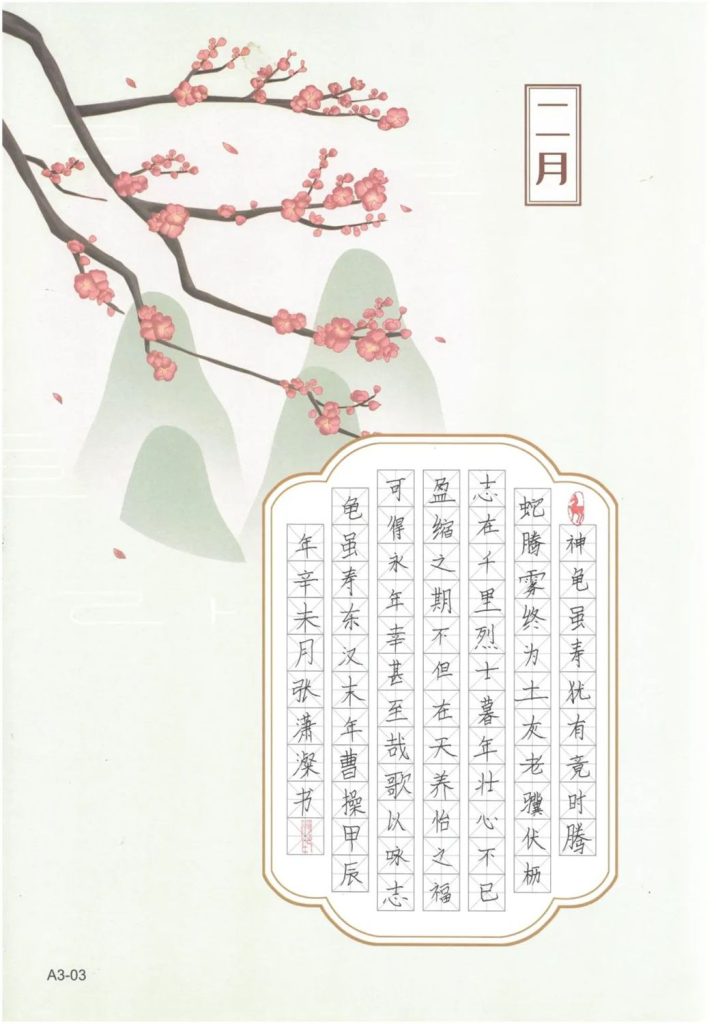 二月
神龟虽寿犹有竟时腾
蛇腾雾终为土灰老骥伏枥
志在千里烈士暮年壮心不已
盈缩之期不但在天养怡之福
可得永年幸甚至哉歌以咏志
龟虽寿东汉末年曹操甲辰
年辛未月张潇澯书
A3-03